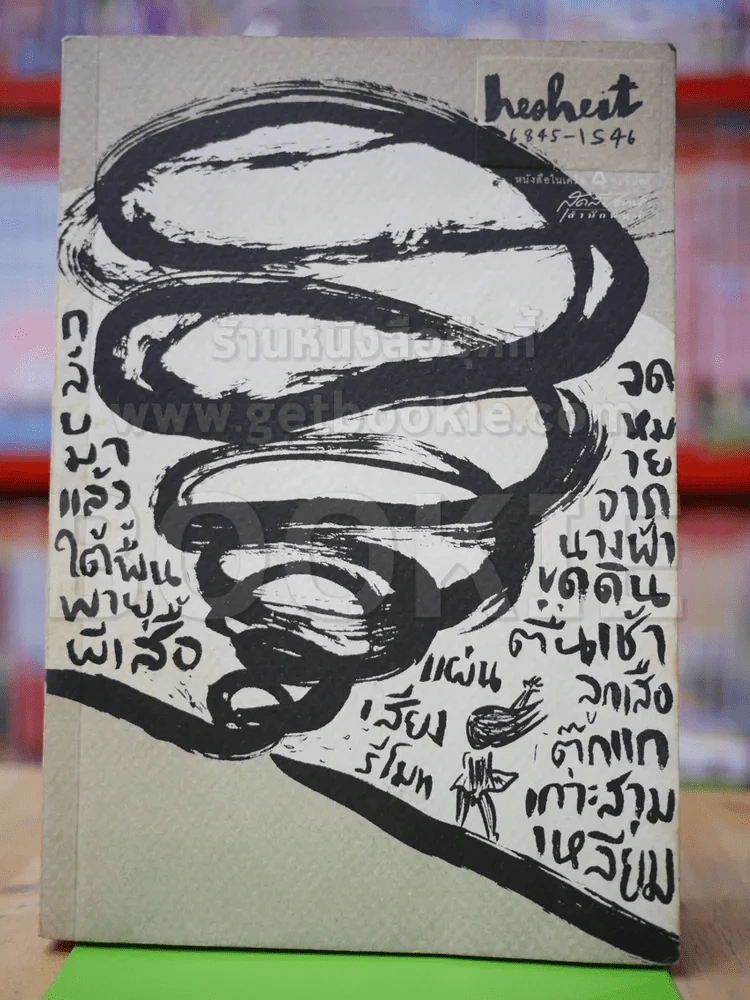 hesheit
6845-1546
หนังสือในเครือ
ร้านหนังสือบุ๊คกี้
www.getbookie.com
BOOKIE
แล้ง
ใต้พื้น
พายุ
ผีเสื้อ
แผ่น
เสียง
รีโมท
จด
หม
าย
จาก
นางฟ้า
ขุดดิน
ตื่นเช้า
ลูกเสือ
ตุ๊กแก
เกาะสาม
เหลี่ยม